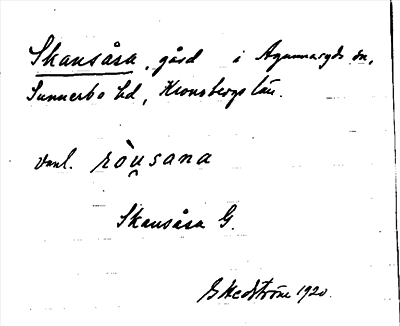 Skansåsa, gård i Agunnaryds sn,
Sunnerbo hd, Kronobergs län.
vanl.
Skansåsa G.
G Hedström 1920.